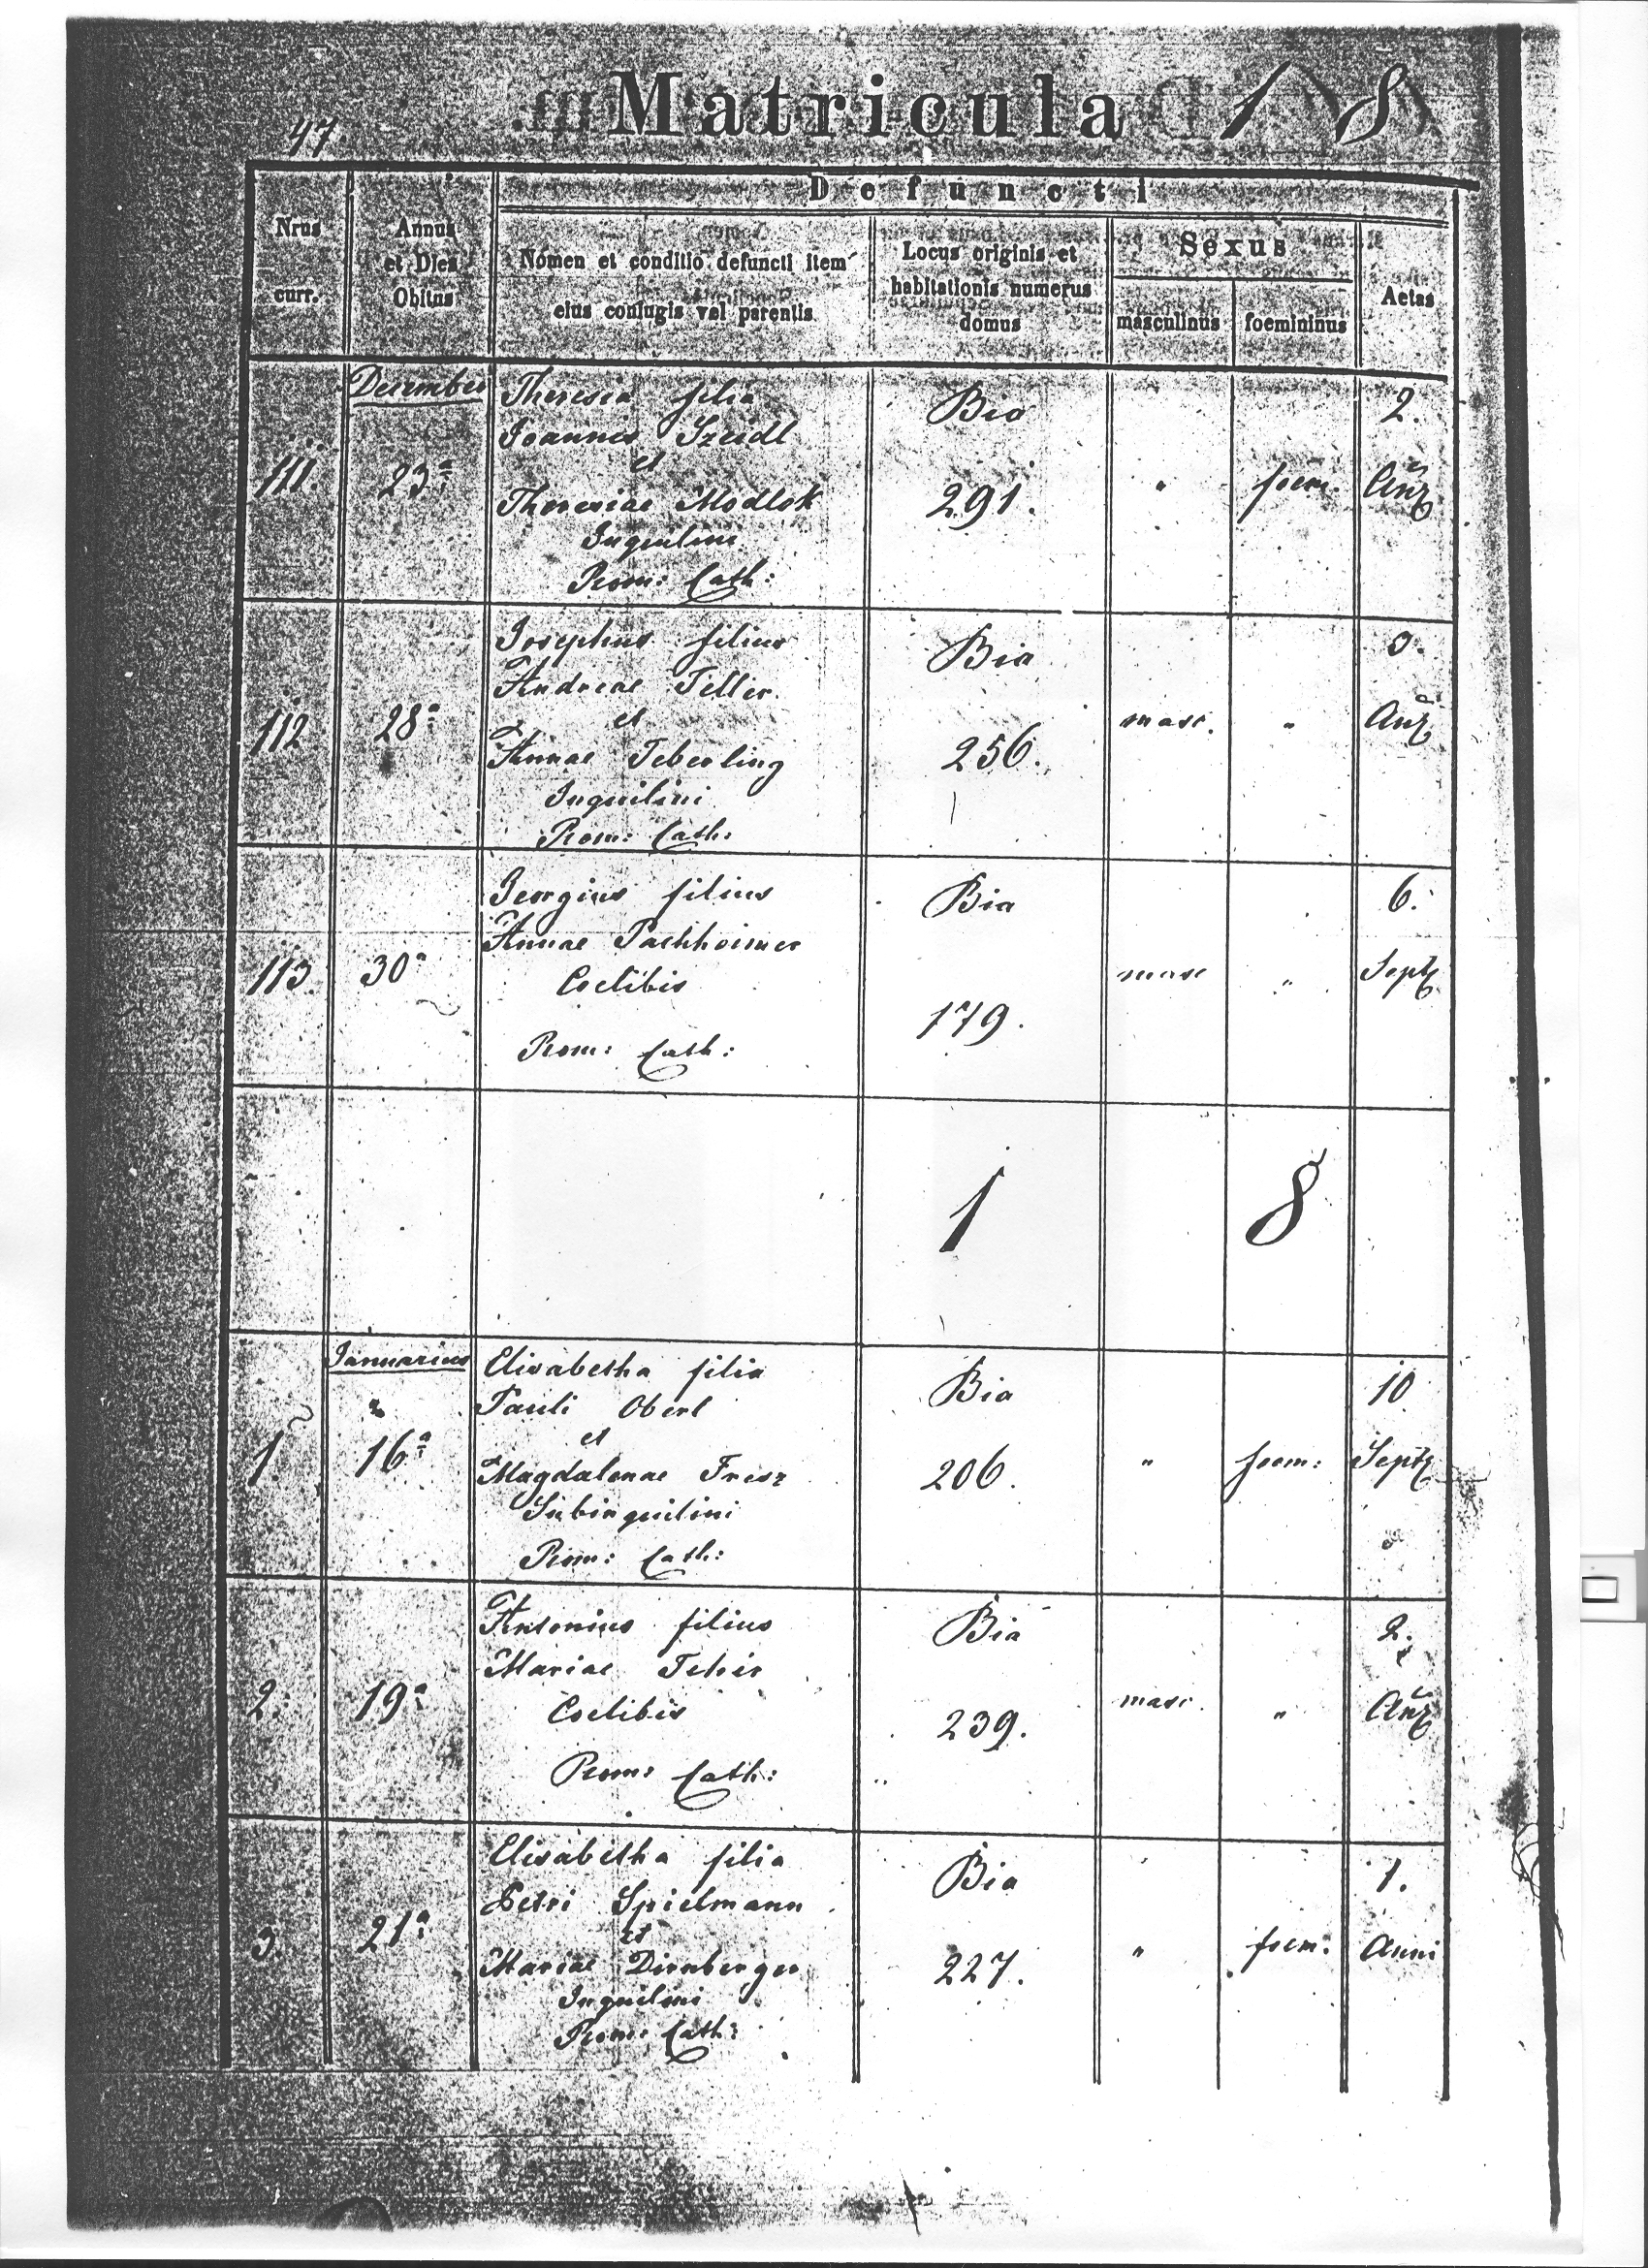 47
Matricula 18
Defuncti
Nrus curr.
Annus et Dies Obitus
Nomen et conditio defuncti item eius coniugis vel parentis
Locus originis et habitationis numerus domus
Sexus
masculinus
foemininus
Aetas
December
111.
23a
Theresia filia
Joannis Szeidl
et
Theresiae Modlok
Inquilini
Rom: Cath:
Bia
291.
"
foem.
2.
An̄
112
28a
Josephus filius
Andreae Feller
et
Annae Teberling
Inquilini
Rom: Cath:
Bia
256.
masc.
"
3.
An̄
113.
30a
Georgius filius
Annae Pachheimer
Coelibis
Rom: Cath:
Bia
179.
masc
"
6.
Sept
1 8
Januarius
1
16a
Elisabetha filia
Pauli Oberl
et
Magdalenae Friesz
Subinquilini
Rom: Cath:
Bia
206.
"
foem:
10
Sept
2.
19a
Antonius filius
Mariae Fehér
Coelibis
Rom: Cath:
Bia
239.
masc.
"
2.
An̄
3
21a
Elisabetha filia
Petri Spielmann
et
Mariae Dirnberger
Inquilini
Rom: Cath:
Bia
227.
"
foem.
1.
Anni